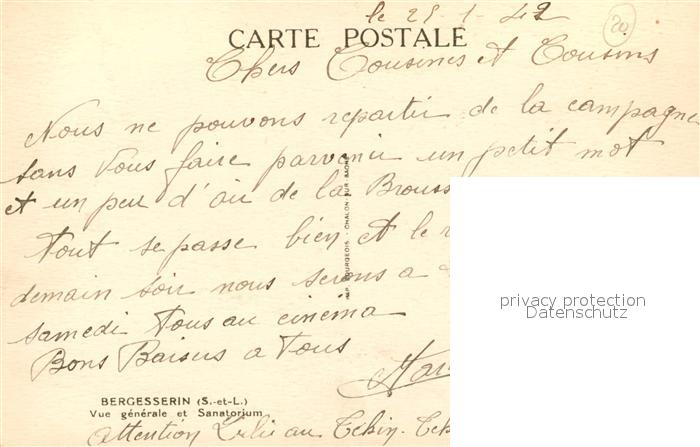 le 25-1-42
20
CARTE POSTALE
Chers Cousines et Cousins
Nous ne pouvons repartir de la campagne
sans vous faire parvenir un petit mot
et un peu d'air de la Brouss
Tout se passe bien et le r
demain soir nous serons a
samedi Tous au cinéma
Bons Baisers a Tous
IMP. BOURGEOIS - CHALON-SUR-SAONE
BERGESSERIN (S.-et-L.)
Vue générale et Sanatorium
attention au
privacy protection
Datenschutz